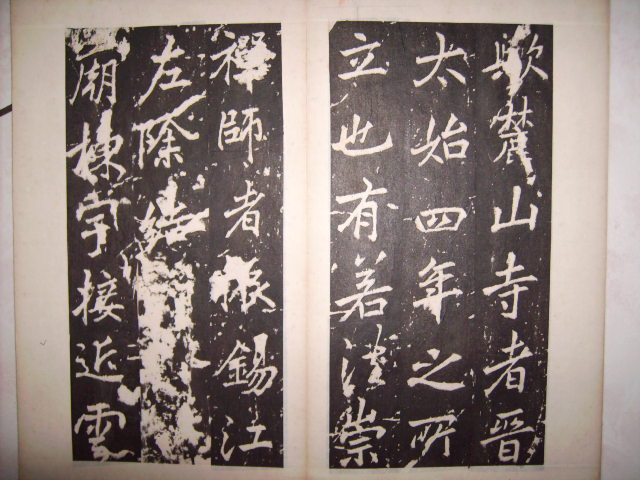 歟麓山寺者晉
太始四年之所
立也有若法崇
禪師者振錫江
左除結
廟棟宇接近雲